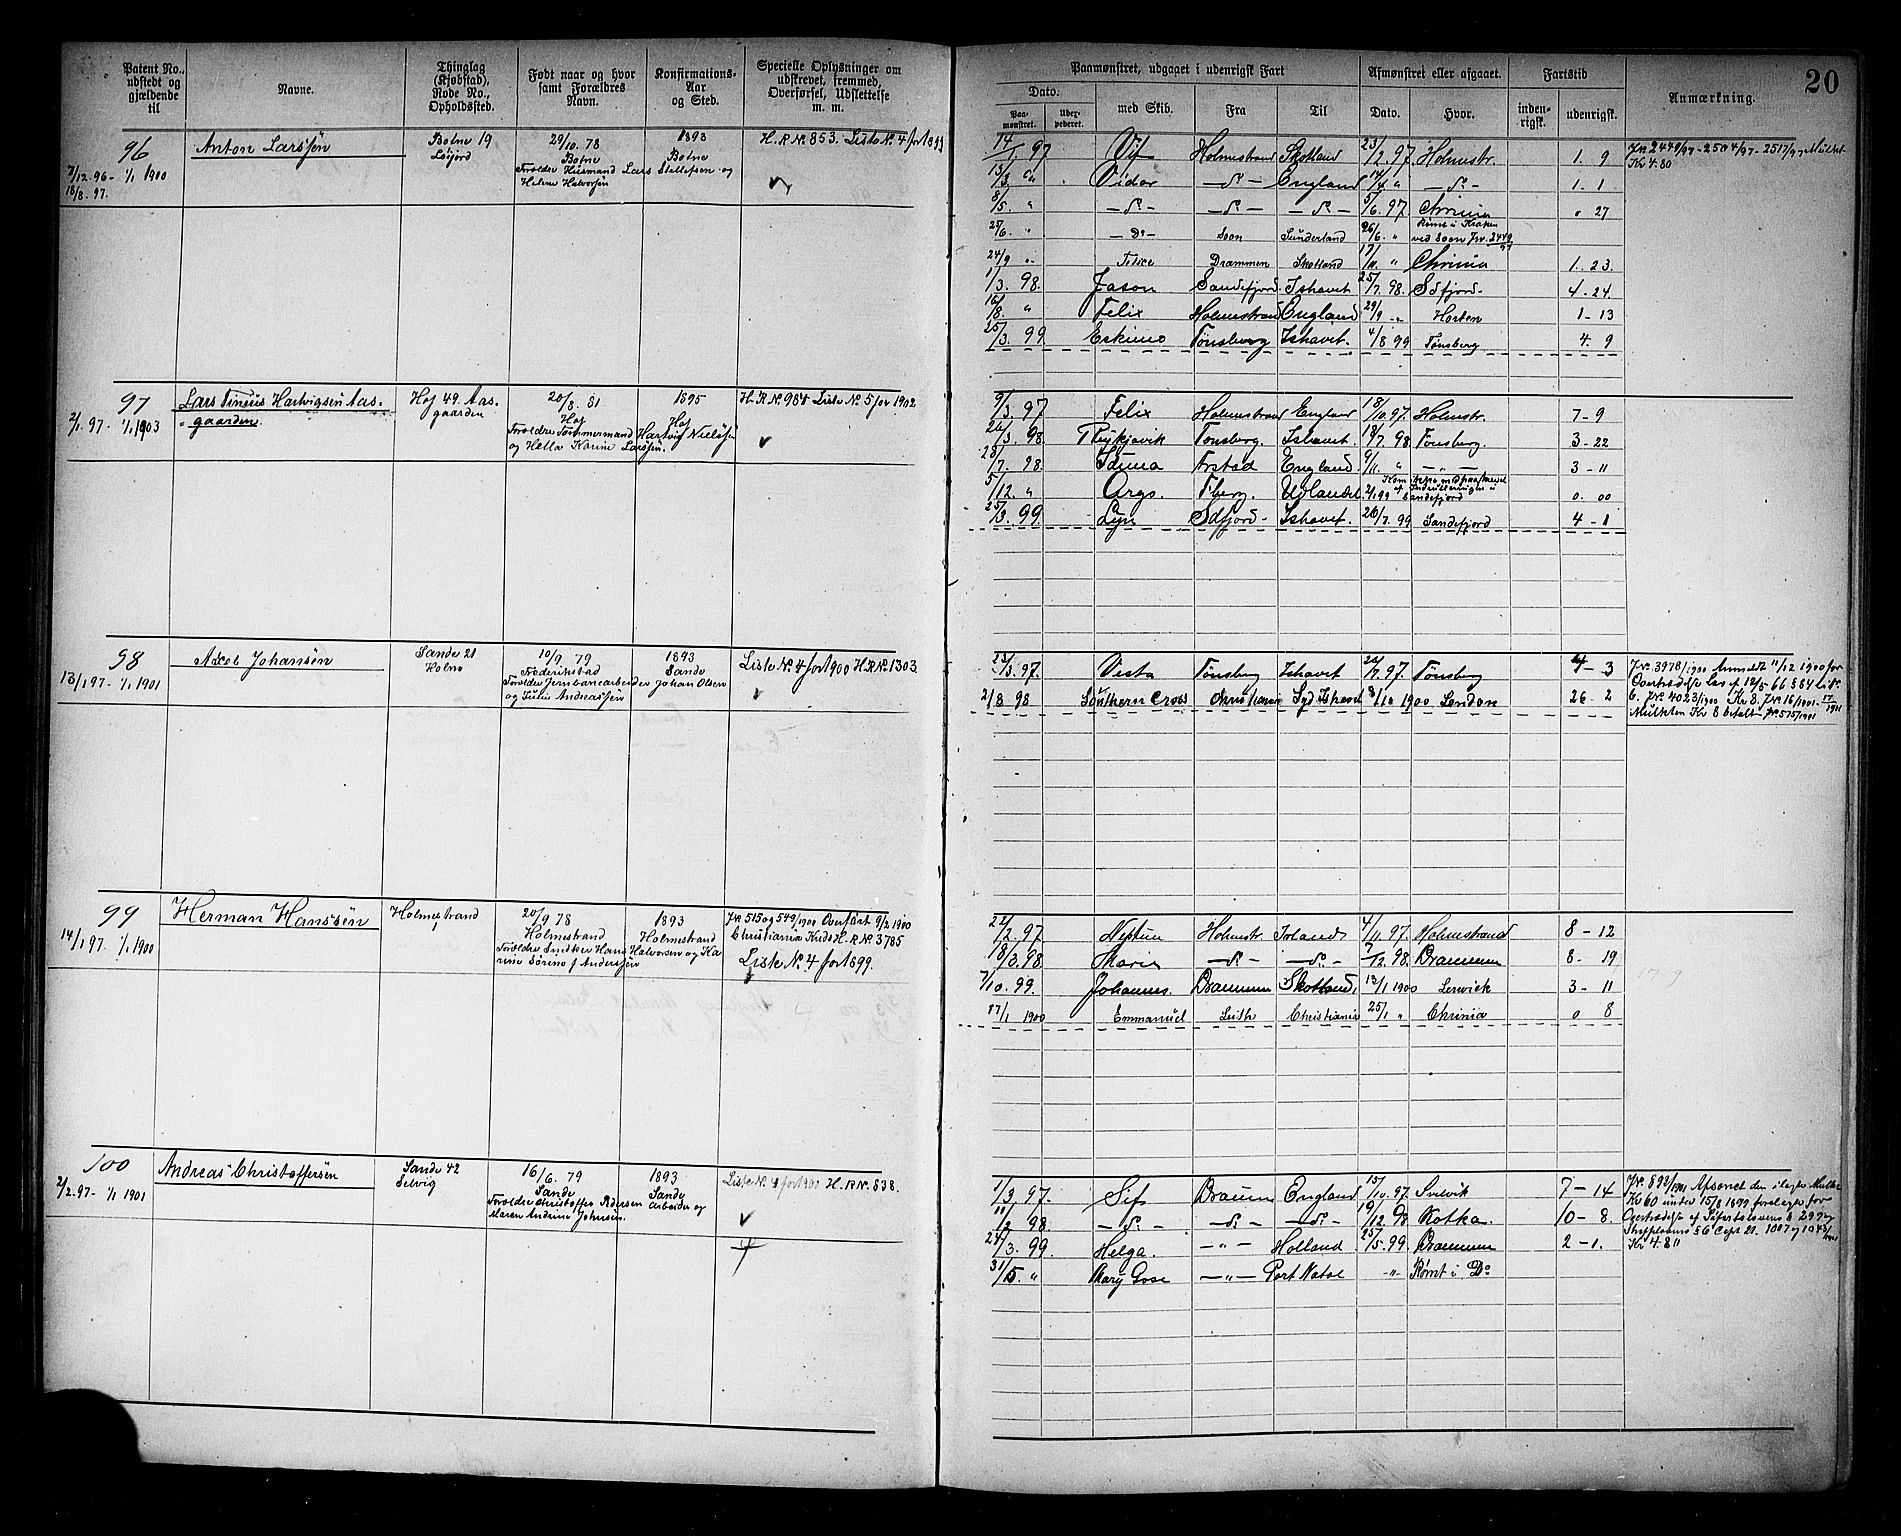 Patent No., udstedt og gjældende til
Navne.
Thinglag (Kjøbstad), Rode No., Opholdssted.
Født naar og hvor samt Forældres Navn.
Konfirmations-Aar og Sted.
Specielle Oplysninger om udskrevet, fremmed, Overførsel, Udslettelse m. m.
Paamønstret, udgaaet i udenrigsk Fart
Afmønstret eller afgaaet.
Fartstid
Anmærkning.
20
Dato.
Paamønstret.
med Skib.
Fra
Til
Dato.
Hvor.
indenrigsk.
udenrigsk.
96
7/12.96 - 1/1 1900
18/8.97.
Anton Larssen
Botne 19
29/10.78
Botne
Forældre Husmand Lars Stellefsen og
Helene Halvorsen
1893
Botne
H.R.No. 853. Liste No. 4 for 1899
14/1 97 Vif Holmestrand Skotland 23/2.97 Holmstr. 1. 9
13/3 " Vidar — do — England 14/4 " — do — 1. 1
8/5. " — do — — do — — do — 5/6.97 Chrinia " 27
25/6. " — Do — Soon Sunderland 26/6. " Rømt i Kroken
ved Soon Jnr. 2449/97
24/9 " Felix Drammen Skotland 17/10. " Chrinia 1. 23.
1/3. 98. Jason Sandefjord Ishavet 25/7.98. Sdfjord. 4 - 24.
16/8. " Felix Holmestrand England 29/9 " Horten 1 - 13
25/3. 99 Eskimo Tønsberg Ishavet. 4/8 99 Tønsberg 4. 9
Jnr. 2449/97 - 2504/97 - 2517/97 Mulkt
Kr 4.80
97
2/1.97 - 1/1 1903
Lars Tinius Hartvigsen Aas-
gaarden
Hof 49. Aas-
gaarden
20/8. 81
Hof
Forældre Tømmermand Hartvig Nielsen
og Hella Karine Larssen.
1895
Hof
H.R.No. 984 Liste No 5 for 1902
9/3.97 Felix Holmestrand England 18/10.97. Holmstr. 7 - 9
26/3. 98 Reykjavik Tønsberg. Ishavet. 18/7.98. Tønsberg. 3 - 22
28/7. 98. Iduna Frstad England. 9/11. " — " — 3 - 11
5/12. " Argo. Tberg. Udlandet 2/1.99 Sandefjord 0. 00
25/3. 99. Lyn Sdfjord Ishavet. 26/7.99 Sandefjord 4 - 1
98
13/1 97 - 1/1 1901
Axel Johansen
Sande 21
Holmo
10/9. 79
Frederikstad
Forældre Jernbanearbeider Johan Olsen
og Julie Andreassen
1893
Sande
Liste No. 4 for 1900 H.R.No. 1303.
23/3.97. Vesta Tønsberg Ishavet 24/7.97. Tønsberg 4 - 3
2/8 98 Southern Cross Christiania Syd Ishavet 8/10 1900 London 26 2
Jnr. 3978/1900 Anmeldt 11/12 1900 for
Overtrædelse Lov af 12/5 66 § 84 lit.
C. Jnr. 4023/1900 Kr 8. Jnr. 16/1901. 17/1901
Mulkten Kr 8 betalt Jnr. 575/1901
99
14/1 97. 1/1 1900
Herman Hanssen
Holmestrand
20/9 78
Holmestrand
Forældre Snedker Hans Halvorsen og Ka-
rine Sørine f Anderssen
1893
Holmestrand
Jnr 515 og 549/1900 Overført 9/2 1900
Christiania Kreds H.R.No. 3785
Liste No. 4 for 1899.
22/2.97. Neptun Holmstr. Irland 4/11.97. Holmestrand 8 - 12
18/3.98. Marie — do — — do — 7/12 98. Drammen 8 - 19
7/10. 99. Johannes. Drammen Skotland, 13/1 1900 Lerwick 3 - 11
17/1 1900 Emmanuel Leith Christiania 25/1 " Chrinia 0 8
100
2/2.97 - 1/1 1901
Andreas Christoffersen
Sande 42
Selvig
16/6. 79
Sande
Forældre Christoffer Pedersen
Maren Andrine Johnsen.
1893
Sande
Arbeider og
Liste No. 4 for 1900 H.R.No. 838.
1/3.97. Sif Dramn England 15/10.97. Svelvik 7 - 14
11/2 98. — do — — do — — do — 19/12 98 Kotka. 10 - 8.
24/3. 99. Helga. — " — Holland 25/5.99. Drammen 2 - 1.
31/5 " Mary Gose — " — Port Natal — " — Rømt i Do
Jnr. 892/1901 Afsonet den ilagte Mulkt
Kr 60 under 15/8 1899 forelagte for
Overtrædelse af Søfartslovens § 292 og
Straffelovens § 6 Cap. 21. 1007 og 1043/1901
Kr 4.80